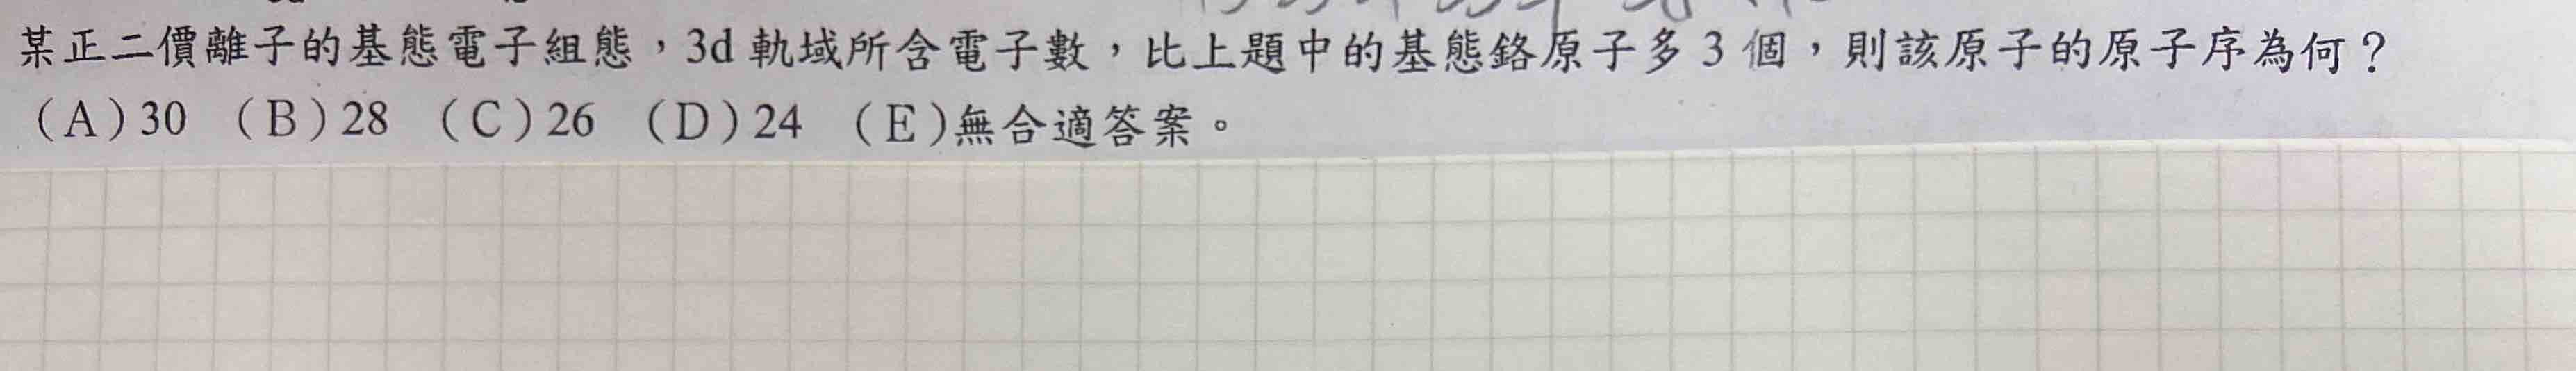 某正二價離子的基態電子組態，3d 軌域所含電子數，比上題中的基態鉻原子多 3 個，則該原子的原子序為何？
（A）30 （B）28 （C）26 （D）24 （E）無合適答案。